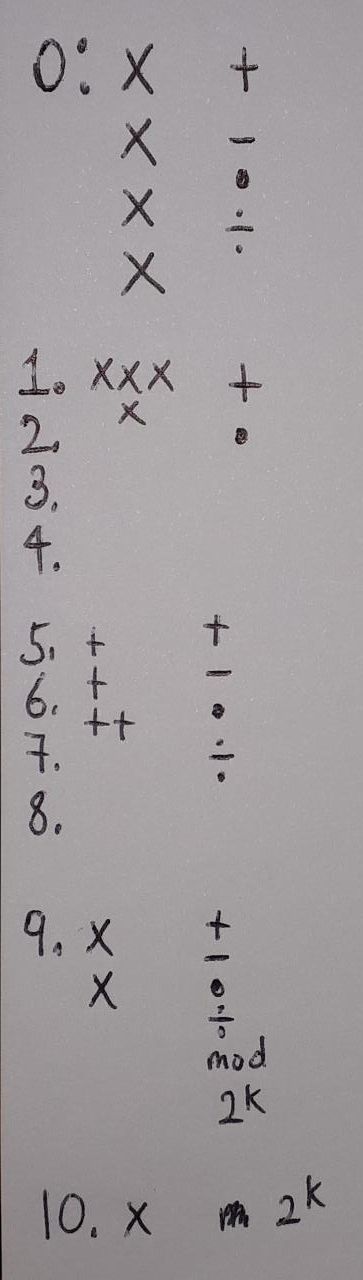 0: x +
x -
x •
x ÷
1. xxx +
x
2. •
3.
4.
5. + +
6. + -
++ •
7. ÷
8.
9. x +
-
x •
÷
mod
2k
10. x 2k